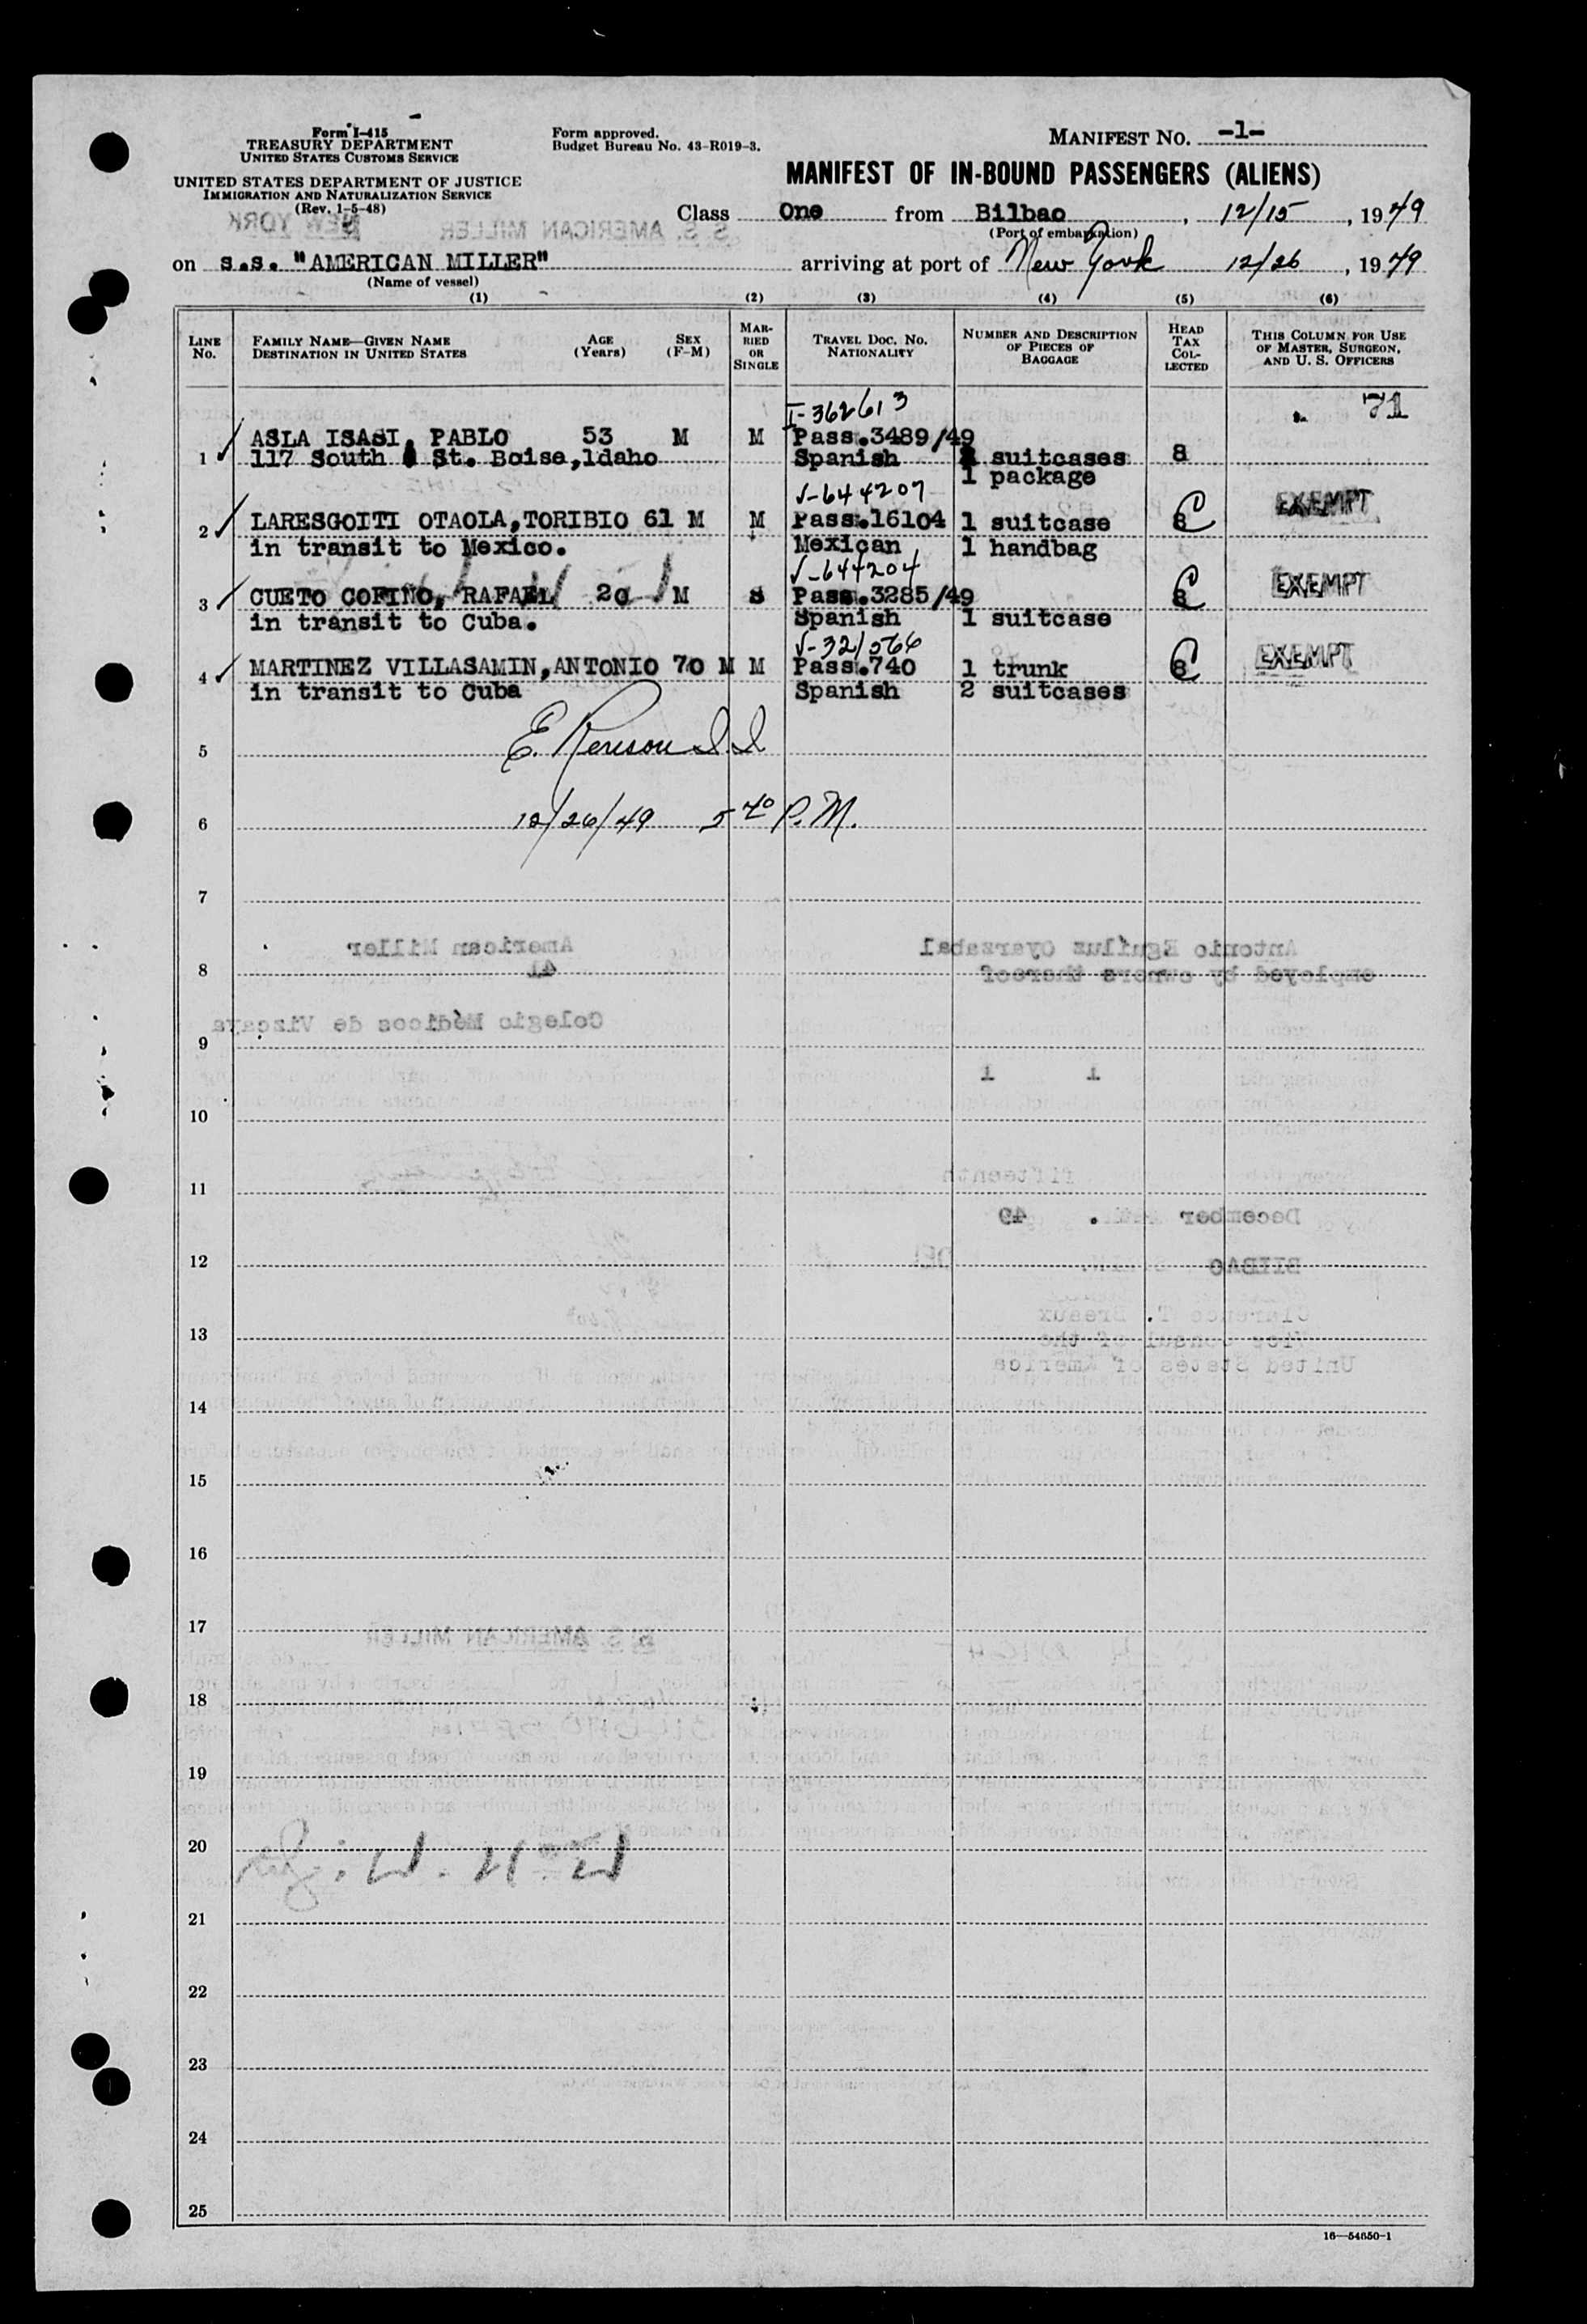 Form I-415
TREASURY DEPARTMENT
UNITED STATES CUSTOMS SERVICE
UNITED STATES DEPARTMENT OF JUSTICE
IMMIGRATION AND NATURALIZATION SERVICE
(Rev. 1-5-48)
Form approved.
Budget Bureau No. 43-R019-3.
MANIFEST NO. -1-
MANIFEST OF IN-BOUND PASSENGERS (ALIENS)
Class One from Bilbao, 12/15, 1949
(Port of embarkation)
NEW YORK
S. S. AMERICAN MILLER
on s.s. "AMERICAN MILLER" arriving at port of New York 12/26, 1949
(Name of vessel)
(1) (2) (3) (4) (5) (6)
LINE No.
FAMILY NAME—GIVEN NAME
DESTINATION IN UNITED STATES
AGE (Years)
SEX (F-M)
MARRIED OR SINGLE
TRAVEL DOC. NO. NATIONALITY
NUMBER AND DESCRIPTION OF PIECES OF BAGGAGE
HEAD TAX COLLECTED
THIS COLUMN FOR USE OF MASTER, SURGEON, AND U. S. OFFICERS
71
I-362613
ASLA ISASI, PABLO 53 M M Pass.3489/49
1 117 South St. Boise,Idaho Spanish suitcases 8
1 package
V-644207
2 LARESGOITI OTAOLA,TORIBIO 61 M M Pass.16104 1 suitcase 8 C EXEMPT
in transit to Mexico. Mexican 1 handbag
V-644204
3 CUETO COFIÑO, RAFAEL 20 M S Pass.3285/49 8 C EXEMPT
in transit to Cuba. Spanish 1 suitcase
V-321566
4 MARTINEZ VILLASAMIN,ANTONIO 70 M M Pass.740 1 trunk 8 C EXEMPT
in transit to Cuba Spanish 2 suitcases
5 E. Renison I.I
6 12/26/49 5 40 P.M.
7
American Miller Antonio Eguíluz Oyarzabal
8 41 employed by owners thereof
Colegio Médicos de Vizcaya
9
1 1
10
11 fifteenth
December 49
12 BILBAO
Clarence T. Breaux
13 Vice Consul of the
United States of America
14
15
16
17 S. S. AMERICAN MILLER
18
19
20
21
22
23
24
25
16—54650-1